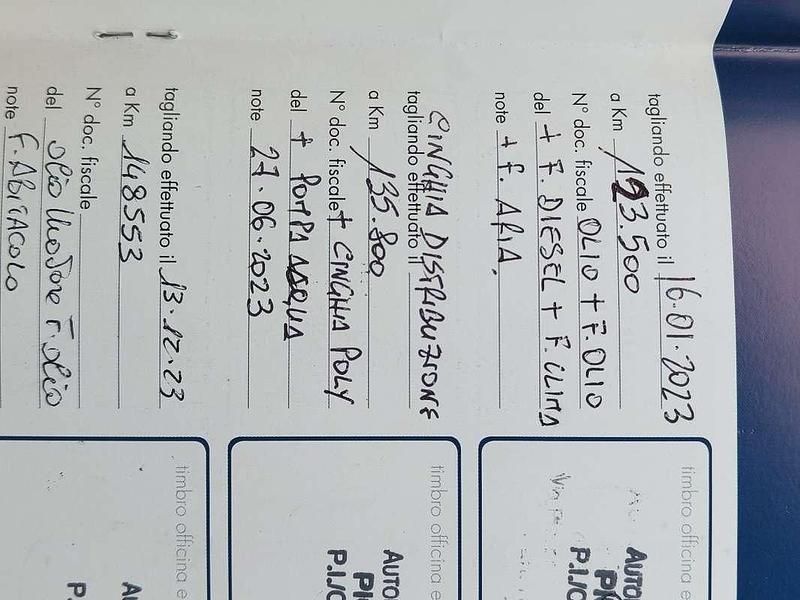 tagliando effettuato il 16.01.2023
a Km 123.500
N° doc. fiscale OLIO + F.OLIO
del + F. DIESEL + F. CLIMA
note + F. ARIA.
timbro officina e
AUTO
P.I./C
CINGHIA DISTRIBUZIONE
tagliando effettuato il
a Km 135.800
N° doc. fiscale + CINGHIA POLY
del + POMPA ACQUA
note 27.06.2023
timbro officina e
AUTO
P.I./C
tagliando effettuato il 13.12.23
a Km 148553
N° doc. fiscale
del olio motore F. olio
note F. ABITACOLO
timbro officina e